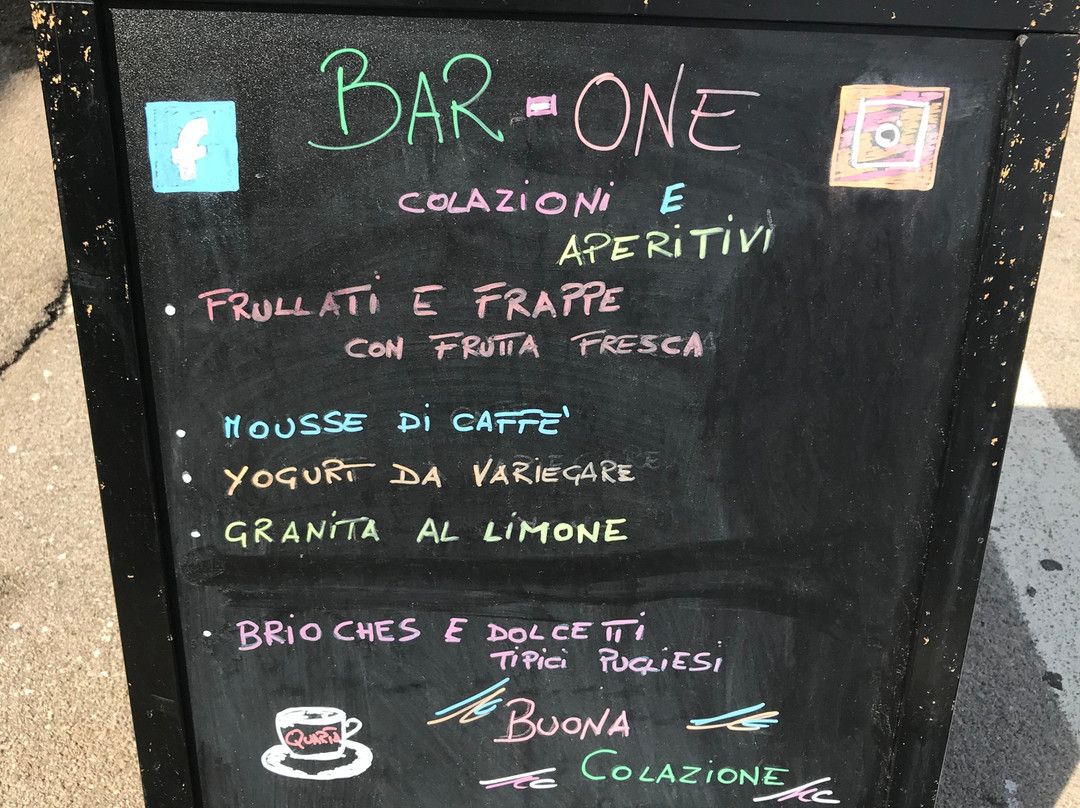 BAR-ONE
COLAZIONI E
APERITIVI
• FRULLATI E FRAPPE
CON FRUTTA FRESCA
• MOUSSE DI CAFFE'
• YOGURT DA VARIEGARE
• GRANITA AL LIMONE
• BRIOCHES E DOLCETTI
TIPICI PUGLIESI
QUARTA
BUONA
COLAZIONE